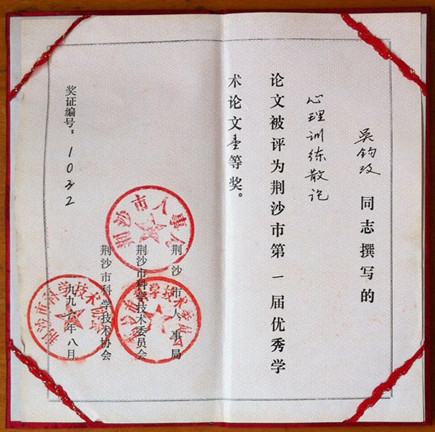 吴钧玫 同志撰写的
心理训练散记
论文被评为荆沙市第一届优秀学
术论文壹等奖。
荆沙市人事局
荆沙市科学技术委员会
荆沙市科学技术协会
一九九六年八月
奖证编号：1032